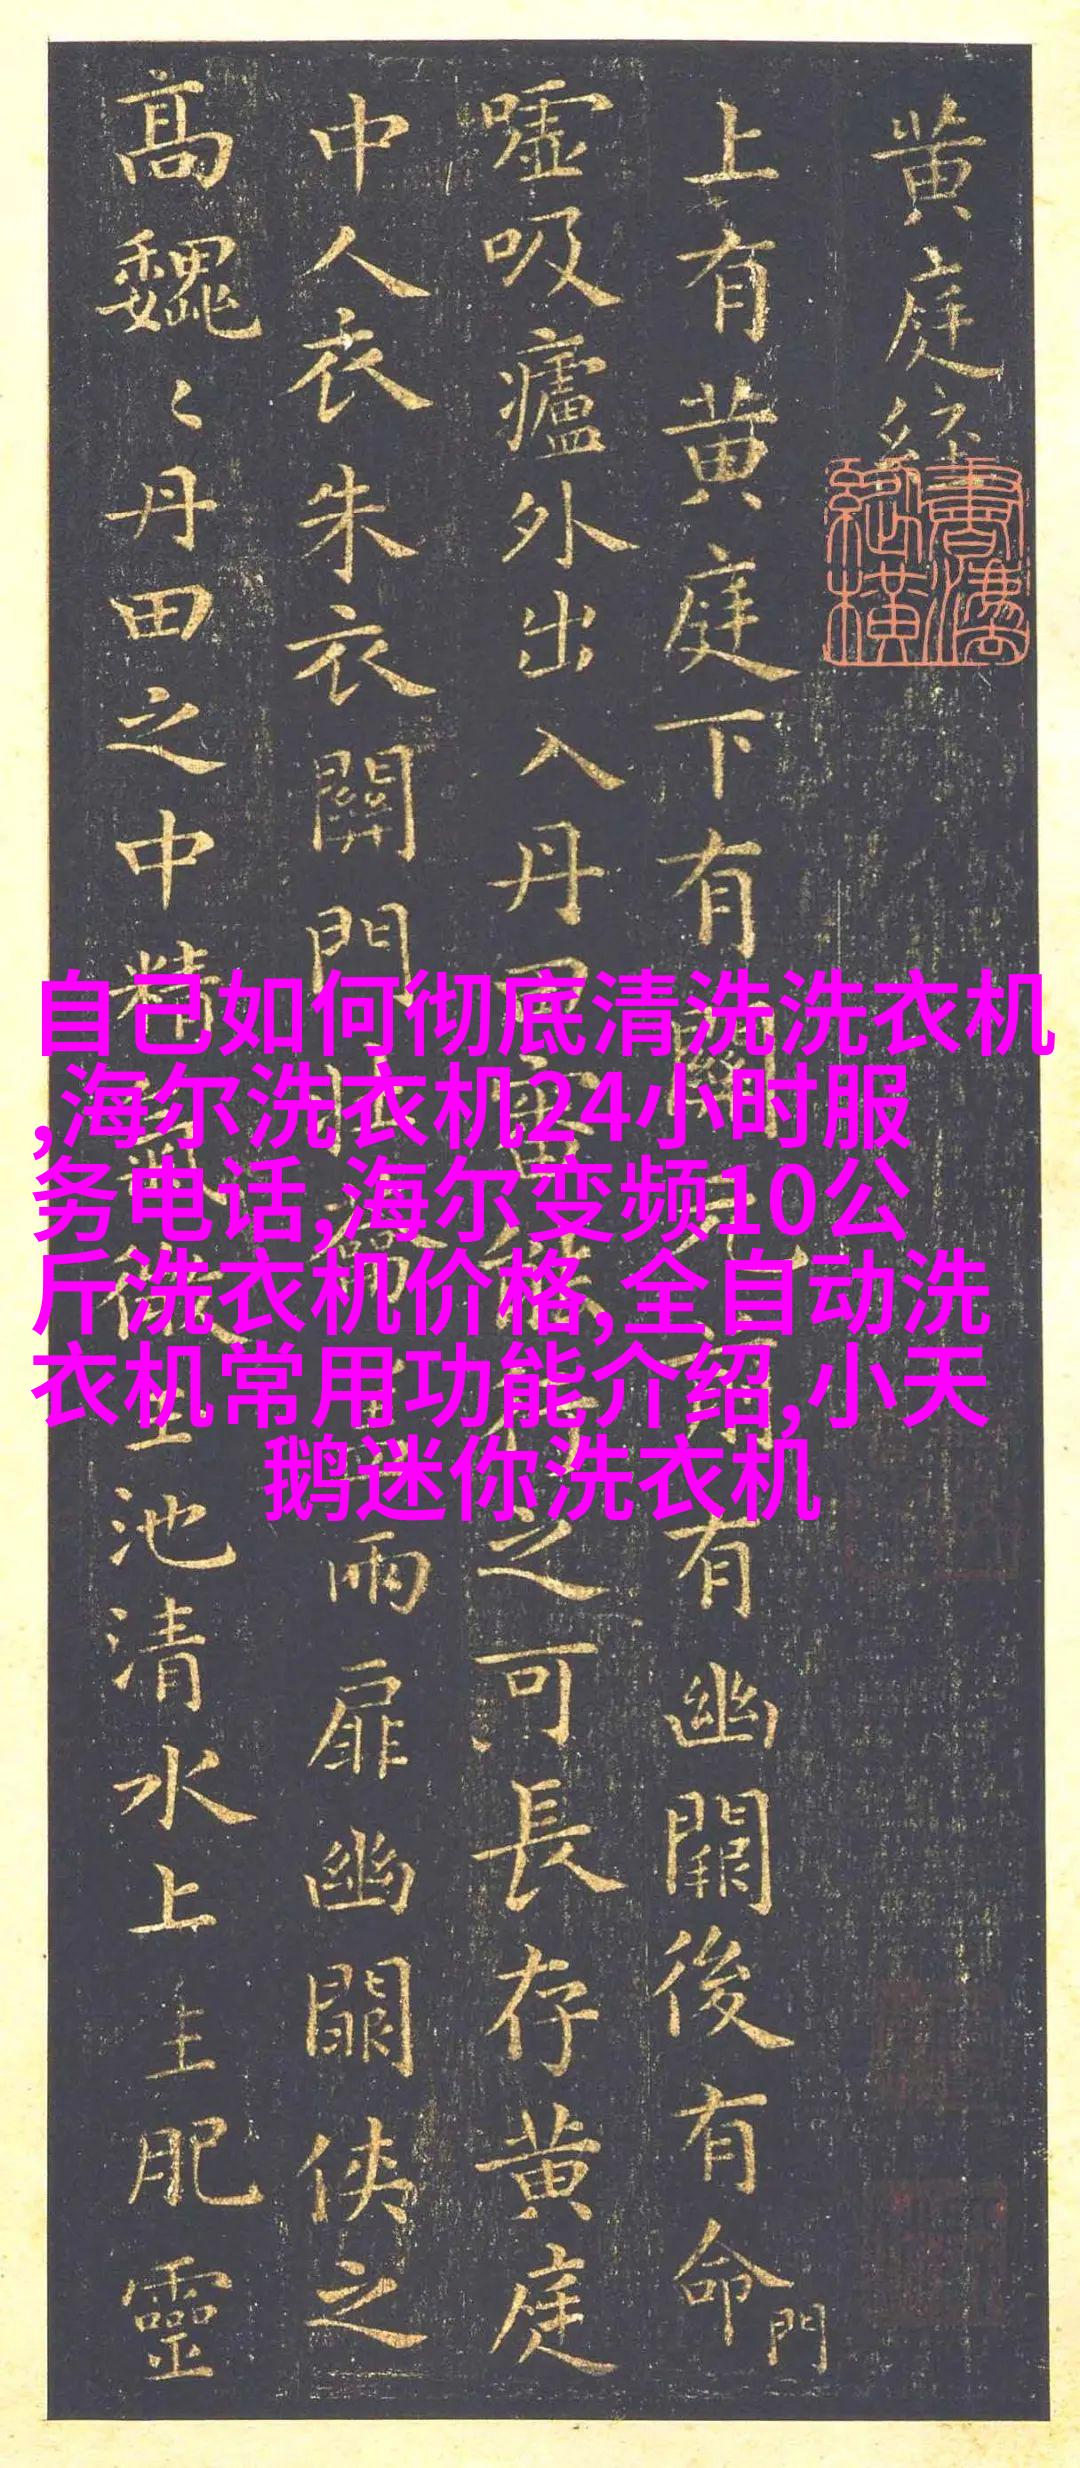 黄庭經
上有黄庭下有有幽闕後有命門
嘘吸廬外出入丹之可長存黄庭
中人衣朱衣關門兩扉幽闕俠之
高魏々丹田之中精池清水上生肥靈
自己如何彻底清洗洗衣机
,海尔洗衣机24小时服
务电话,海尔变频10公
斤洗衣机价格,全自动洗
衣机常用功能介绍,小天
鹅迷你洗衣机